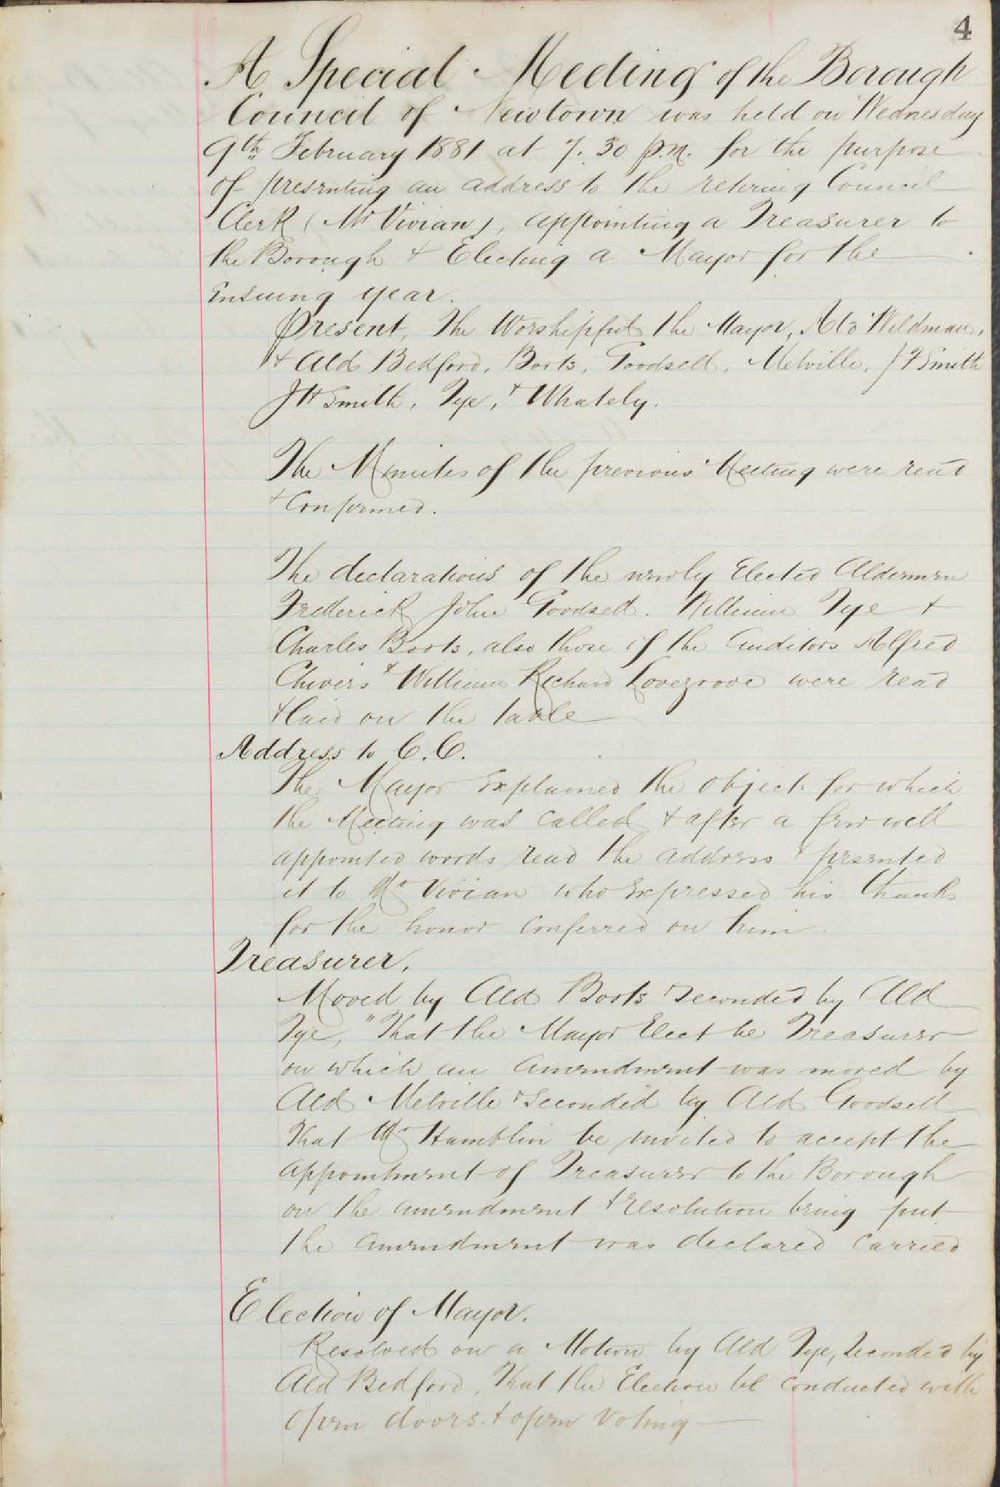 4
A Special Meeting of the Borough
Council of Newtown was held on Wednesday
9th February 1881 at 7.30 p.m. for the purpose
of presenting an address to the retiring Council
Clerk (Mr Vivian), appointing a Treasurer to
the Borough & Electing a Mayor for the
ensuing year.
Present, The Worshipful the Mayor, Wildman,
& Ald Bedford, Boots, Goodsell, Melville, J F Smith
J H Smith, Tye, & Whately.
The Minutes of the previous Meeting were read
& Confirmed.
The declarations of the newly Elected Aldermen
Frederick John Goodsell. William Tye &
Charles Boots, also those of the Auditors Alfred
Chivers & William Richard Lovegrove were read
& laid on the table
Address to C.C.
The Mayor Explained the object for which
the Meeting was called & after a few well
appointed words read the address & presented
it to Mr Vivian who Expressed his thanks
for the honor conferred on him.
Treasurer.
Moved by Ald Boots seconded by Ald
Tye, "That the Mayor Elect be Treasurer
on which an amendment was moved by
Ald Melville & Seconded by Ald Goodsell
That Mr Hamblin be invited to accept the
appointment of Treasurer to the Borough
on the amendment & resolution being put
the amendment was declared carried
Election of Mayor.
Resolved on a Motion by Ald Tye, Seconded by
Ald Bedford, That the Election be conducted with
open doors & open voting